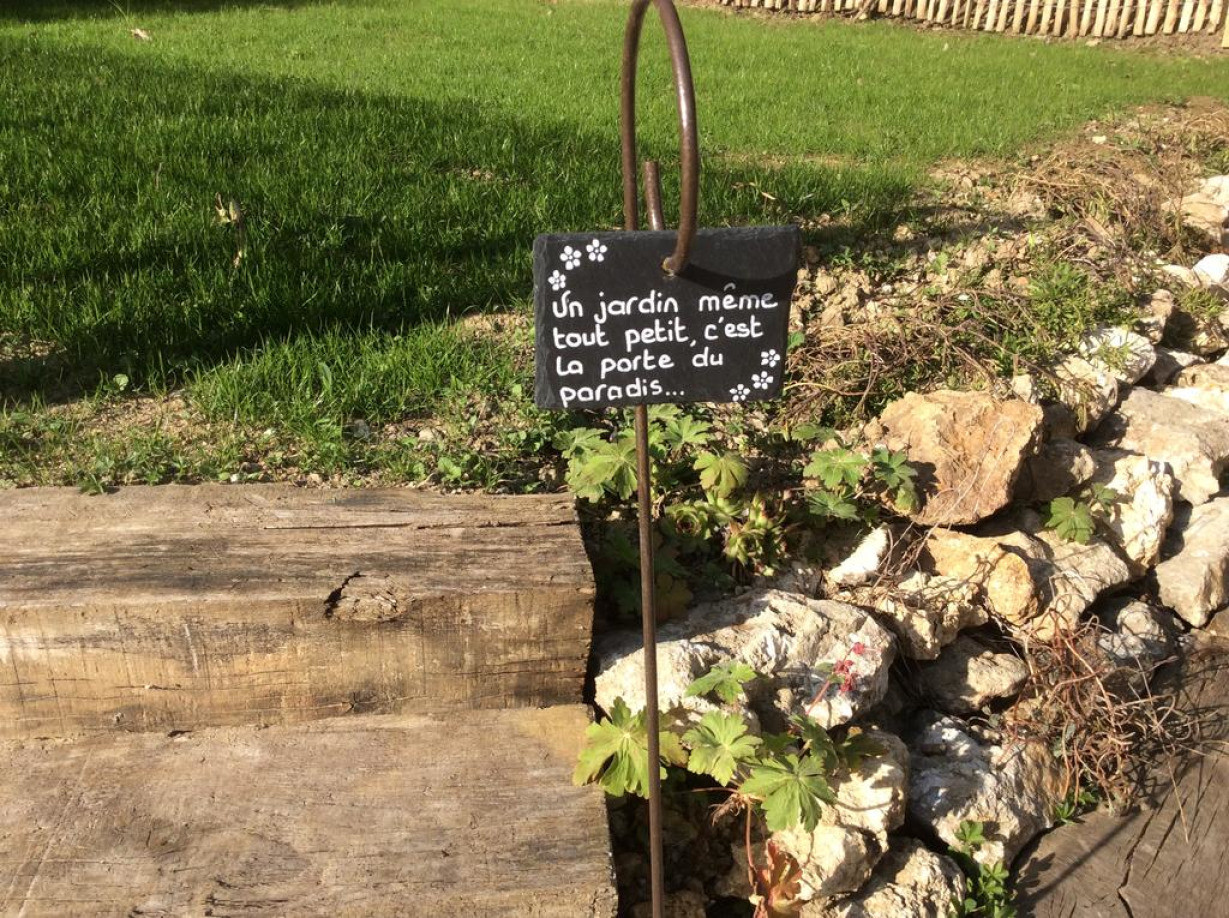 Un jardin même
tout petit, c'est
la porte du
paradis...